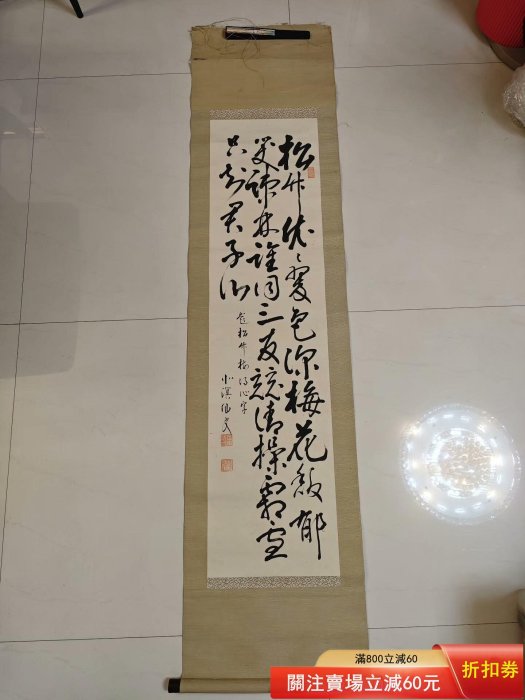 松竹依々翠色深梅花馥郁
笑疎林誰同三友競清操霜雪
只知君子心
題松竹梅得心字
小溟
滿800立減60
關注賣場立減60元
折扣券